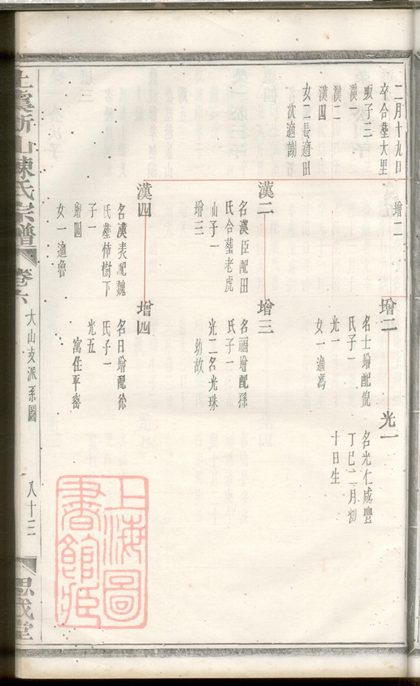 二月十九日
卒合墓大里
取子三
漢一
漢二
漢四
女二長適田
次適謝
增二
增二
名士增配倪
氏子一
光一
女一適馮
光一
名光仁咸豐
丁巳二月初
十日生
漢二
名漢臣配田
氏合墓老虎
山子一
增三
增三
名福增配孫
氏子一
光二名光珠
幼故
漢四
名漢表配魏
氏墓柿樹下
子一
增四
女一適魯
增四
名日增配徐
氏子一
光五
寓住平窑
上虞新山陳氏宗譜
卷六
大山支派系圖
八十三
思成堂
上海圖書館藏